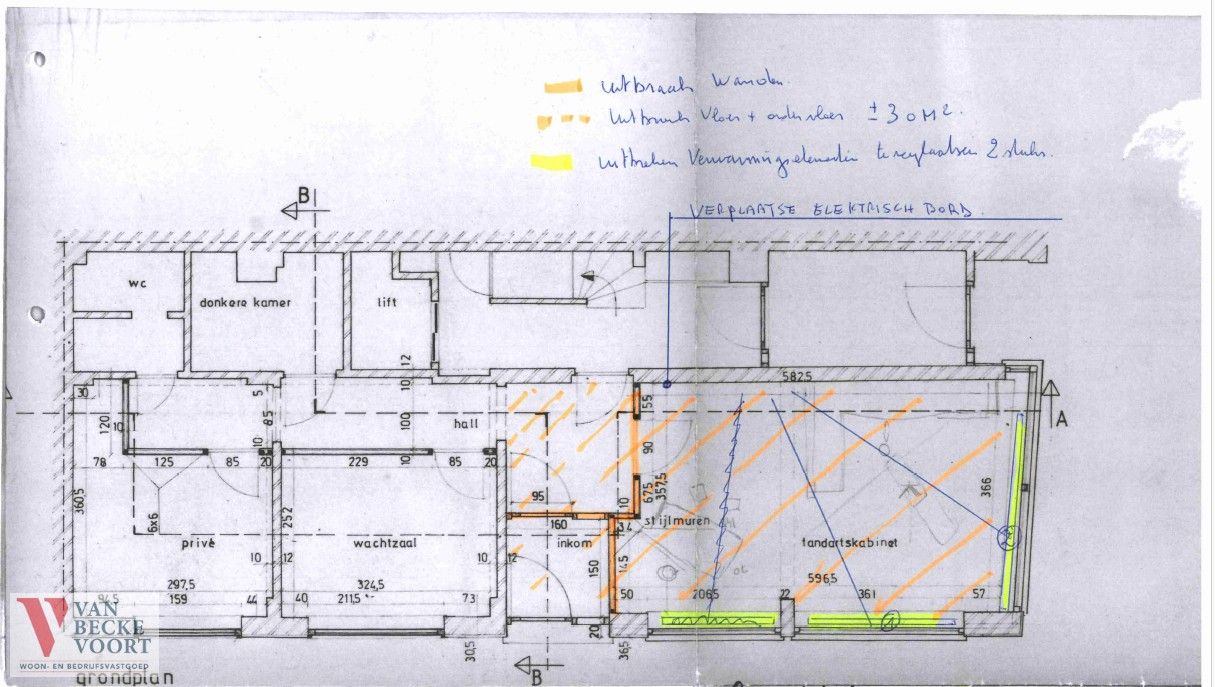 uitbraak wanden.
uitbraak vloer + ondervloer ± 30 M².
uitbreken verwarmingselementen te verplaatsen 2 stuks.
VERPLAATSE ELEKTRISCH BORD.
B
wc
donkere kamer
lift
12
582,5
30
5
10
55
A
120
10
85
100
hall
90
10
10
78
125
85
20
229
85
20
360,5
252
95
67,5
357,5
366
6x6
160
10
34
stijlmuren
privé
wachtzaal
inkom
tandartskabinet
10
12
10
12
150
145
297,5
324,5
596,5
94,5
159
44
40
211,5
73
50
206,5
22
361
57
1
20
30,5
36,5
B
VAN
BECKE
VOORT
WOON- EN BEDRIJFSVASTGOED
grondplan